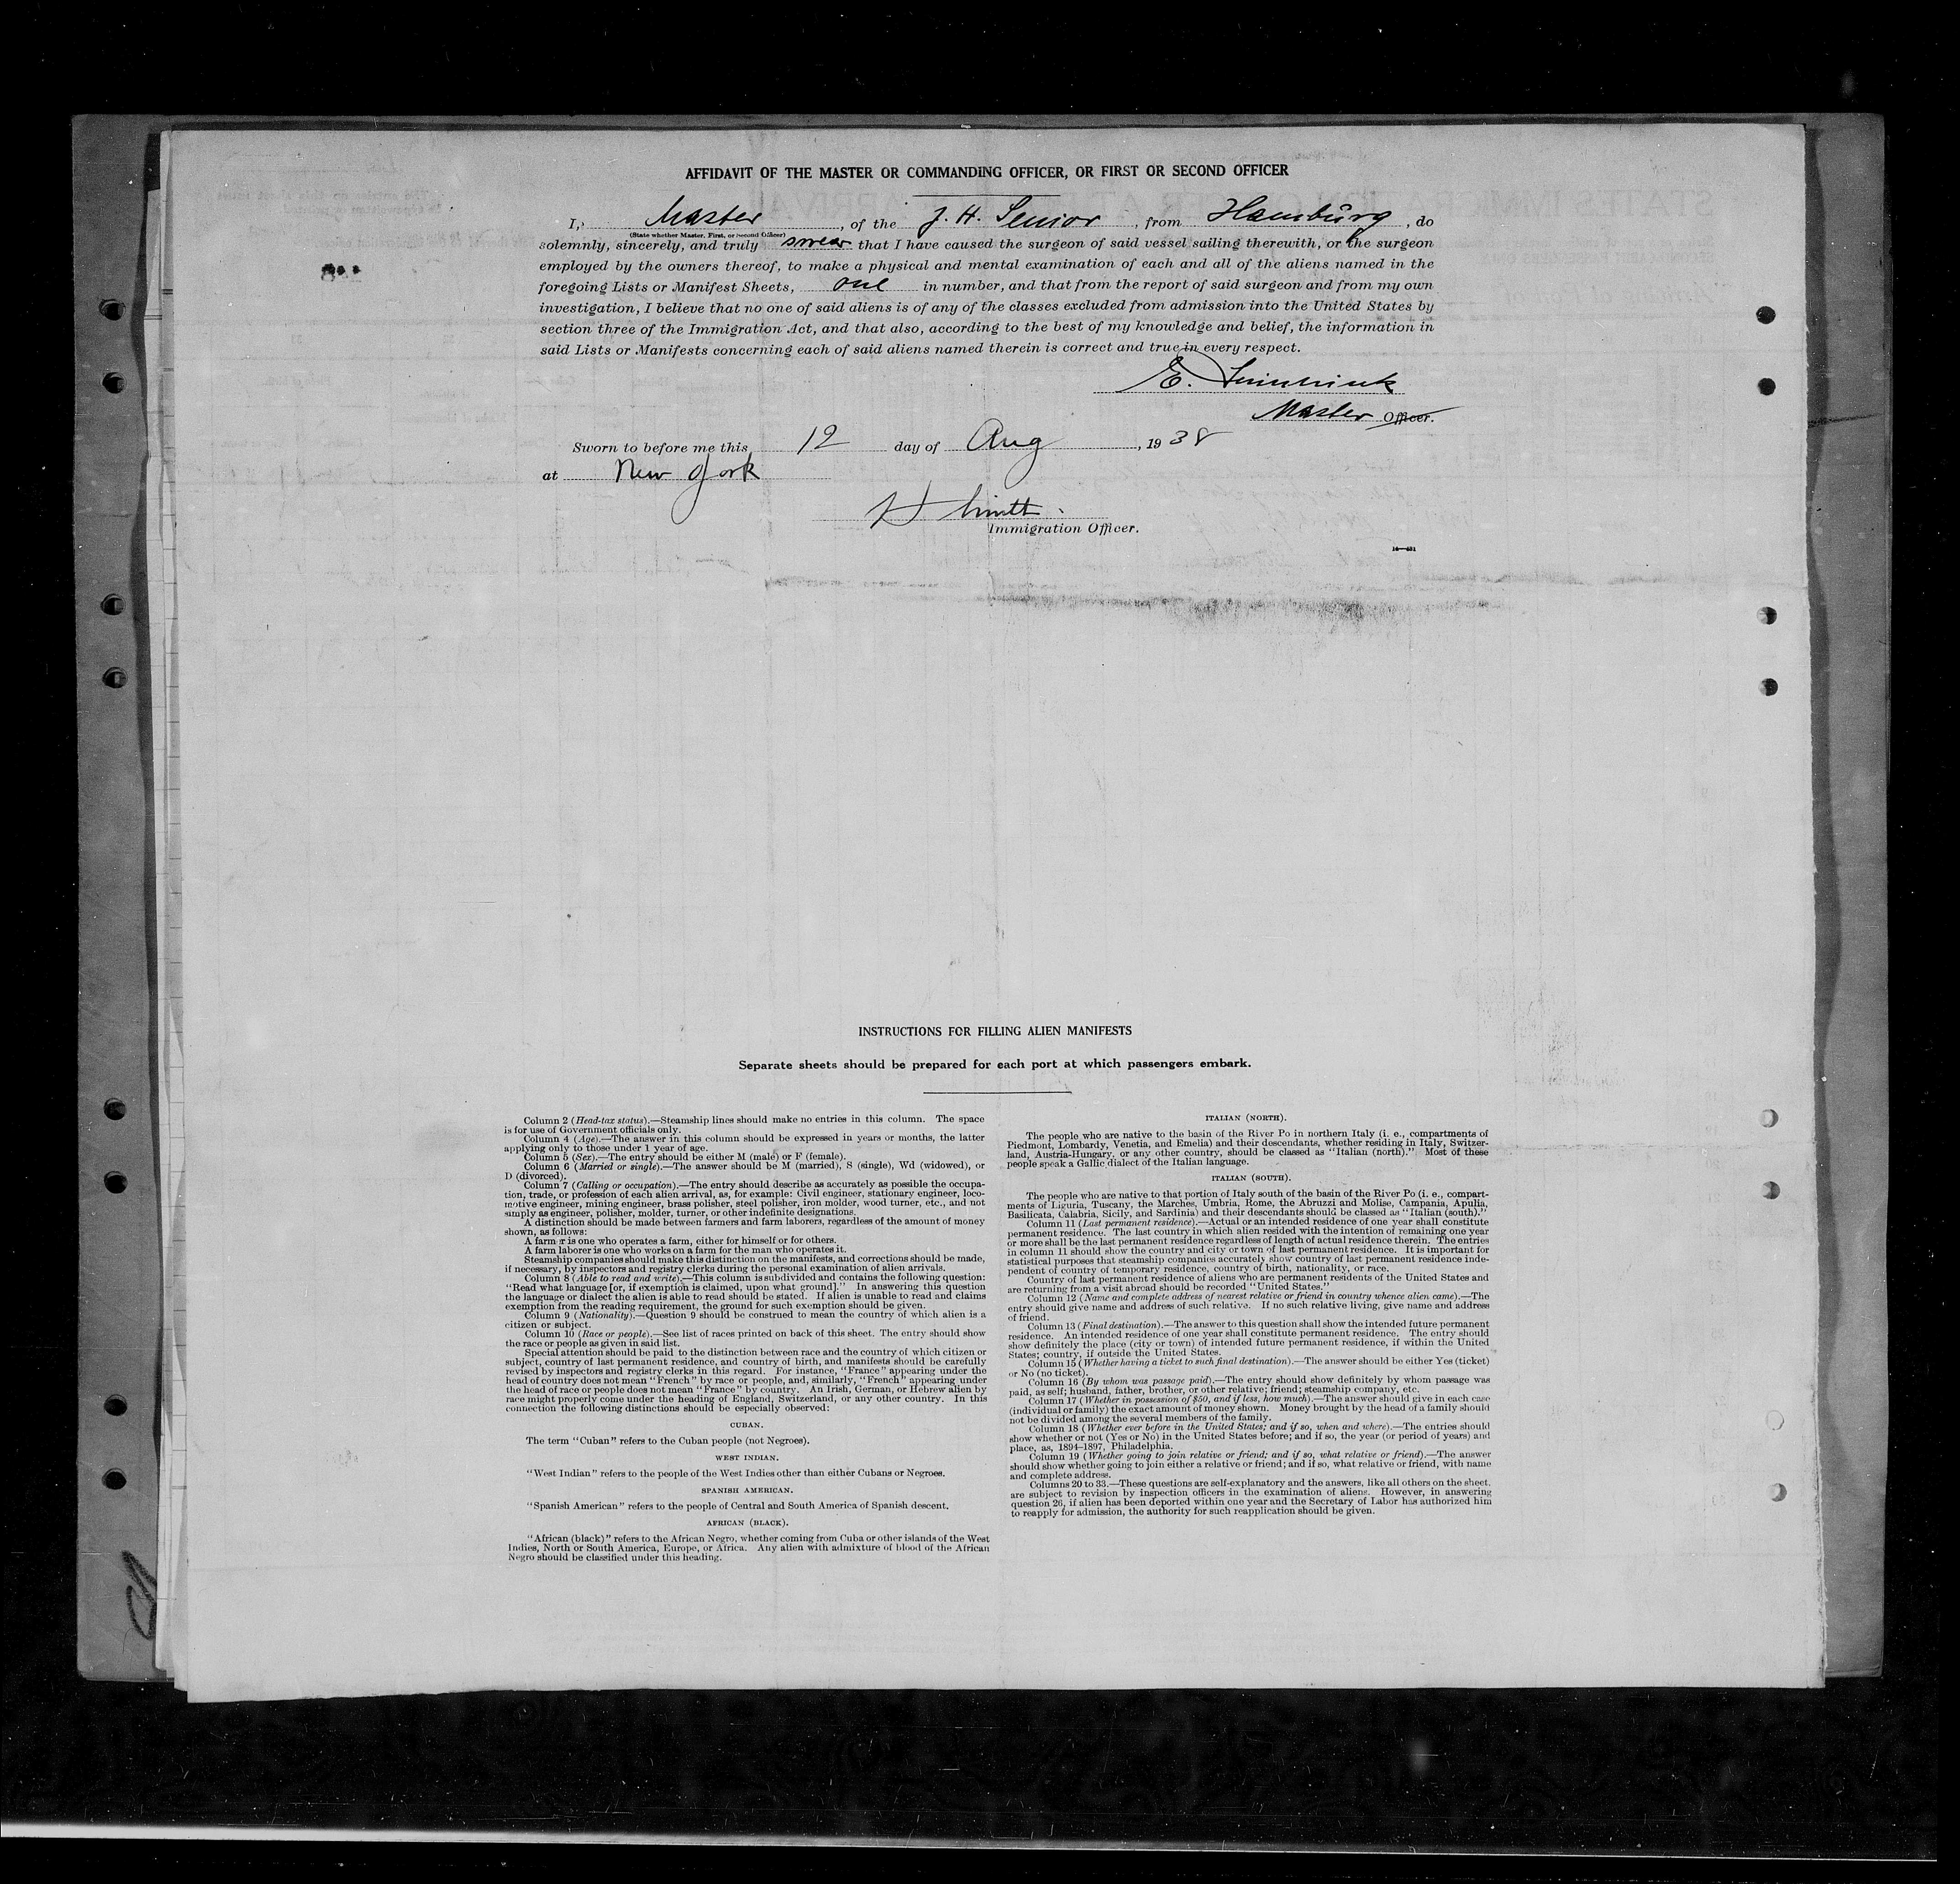 AFFIDAVIT OF THE MASTER OR COMMANDING OFFICER, OR FIRST OR SECOND OFFICER
I, Master, of the J. H. Senior, from Hamburg, do
(State whether Master, First, or Second Officer)
solemnly, sincerely, and truly swear that I have caused the surgeon of said vessel sailing therewith, or the surgeon
employed by the owners thereof, to make a physical and mental examination of each and all of the aliens named in the
foregoing Lists or Manifest Sheets, one in number, and that from the report of said surgeon and from my own
investigation, I believe that no one of said aliens is of any of the classes excluded from admission into the United States by
section three of the Immigration Act, and that also, according to the best of my knowledge and belief, the information in
said Lists or Manifests concerning each of said aliens named therein is correct and true in every respect.
E.
Master Officer.
Sworn to before me this 12 day of Aug, 1938
at New York
Immigration Officer.
INSTRUCTIONS FOR FILLING ALIEN MANIFESTS
Separate sheets should be prepared for each port at which passengers embark.
Column 2 (Head-tax status).—Steamship lines should make no entries in this column. The space
is for use of Government officials only.
Column 4 (Age).—The answer in this column should be expressed in years or months, the latter
applying only to those under 1 year of age.
Column 5 (Sex).—The entry should be either M (male) or F (female).
Column 6 (Married or single).—The answer should be M (married), S (single), Wd (widowed), or
D (divorced).
Column 7 (Calling or occupation).—The entry should describe as accurately as possible the occupa-
tion, trade, or profession of each alien arrival, as, for example: Civil engineer, stationary engineer, loco-
motive engineer, mining engineer, brass polisher, steel polisher, iron molder, wood turner, etc., and not
simply as engineer, polisher, molder, turner, or other indefinite designations.
A distinction should be made between farmers and farm laborers, regardless of the amount of money
shown, as follows:
A farmer is one who operates a farm, either for himself or for others.
A farm laborer is one who works on a farm for the man who operates it.
Steamship companies should make this distinction on the manifests, and corrections should be made,
if necessary, by inspectors and registry clerks during the personal examination of alien arrivals.
Column 8 (Able to read and write).—This column is subdivided and contains the following question:
"Read what language [or, if exemption is claimed, upon what ground]." In answering this question
the language or dialect the alien is able to read should be stated. If alien is unable to read and claims
exemption from the reading requirement, the ground for such exemption should be given.
Column 9 (Nationality).—Question 9 should be construed to mean the country of which alien is a
citizen or subject.
Column 10 (Race or people).—See list of races printed on back of this sheet. The entry should show
the race or people as given in said list.
Special attention should be paid to the distinction between race and the country of which citizen or
subject, country of last permanent residence, and country of birth, and manifests should be carefully
revised by inspectors and registry clerks in this regard. For instance, "France" appearing under the
head of country does not mean "French" by race or people, and, similarly, "French" appearing under
the head of race or people does not mean "France" by country. An Irish, German, or Hebrew alien by
race might properly come under the heading of England, Switzerland, or any other country. In this
connection the following distinctions should be especially observed:
CUBAN.
The term "Cuban" refers to the Cuban people (not Negroes).
WEST INDIAN.
"West Indian" refers to the people of the West Indies other than either Cubans or Negroes.
SPANISH AMERICAN.
"Spanish American" refers to the people of Central and South America of Spanish descent.
AFRICAN (BLACK).
"African (black)" refers to the African Negro, whether coming from Cuba or other islands of the West
Indies, North or South America, Europe, or Africa. Any alien with admixture of blood of the African
Negro should be classified under this heading.
ITALIAN (NORTH).
The people who are native to the basin of the River Po in northern Italy (i. e., compartments of
Piedmont, Lombardy, Venetia, and Emelia) and their descendants, whether residing in Italy, Switzer-
land, Austria-Hungary, or any other country, should be classed as "Italian (north)." Most of these
people speak a Gallic dialect of the Italian language.
ITALIAN (SOUTH).
The people who are native to that portion of Italy south of the basin of the River Po (i. e., compart-
ments of Liguria, Tuscany, the Marches, Umbria, Rome, the Abruzzi and Molise, Campania, Apulia,
Basilicata, Calabria, Sicily, and Sardinia) and their descendants should be classed as "Italian (south)."
Column 11 (Last permanent residence).—Actual or an intended residence of one year shall constitute
permanent residence. The last country in which alien resided with the intention of remaining one year
or more shall be the last permanent residence regardless of length of actual residence therein. The entries
in column 11 should show the country and city or town of last permanent residence. It is important for
statistical purposes that steamship companies accurately show country of last permanent residence inde-
pendent of country of temporary residence, country of birth, nationality, or race.
Country of last permanent residence of aliens who are permanent residents of the United States and
are returning from a visit abroad should be recorded "United States."
Column 12 (Name and complete address of nearest relative or friend in country whence alien came).—The
entry should give name and address of such relative. If no such relative living, give name and address
of friend.
Column 13 (Final destination).—The answer to this question shall show the intended future permanent
residence. An intended residence of one year shall constitute permanent residence. The entry should
show definitely the place (city or town) of intended future permanent residence, if within the United
States; country, if outside the United States.
Column 15 (Whether having a ticket to such final destination).—The answer should be either Yes (ticket)
or No (no ticket).
Column 16 (By whom was passage paid).—The entry should show definitely by whom passage was
paid, as self; husband, father, brother, or other relative; friend; steamship company, etc.
Column 17 (Whether in possession of $50, and if less, how much).—The answer should give in each case
(individual or family) the exact amount of money shown. Money brought by the head of a family should
not be divided among the several members of the family.
Column 18 (Whether ever before in the United States; and if so, when and where).—The entries should
show whether or not (Yes or No) in the United States before; and if so, the year (or period of years) and
place, as, 1894–1897, Philadelphia.
Column 19 (Whether going to join relative or friend; and if so, what relative or friend).—The answer
should show whether going to join either a relative or friend; and if so, what relative or friend, with name
and complete address.
Columns 20 to 33.—These questions are self-explanatory and the answers, like all others on the sheet,
are subject to revision by inspection officers in the examination of aliens. However, in answering
question 26, if alien has been deported within one year and the Secretary of Labor has authorized him
to reapply for admission, the authority for such reapplication should be given.